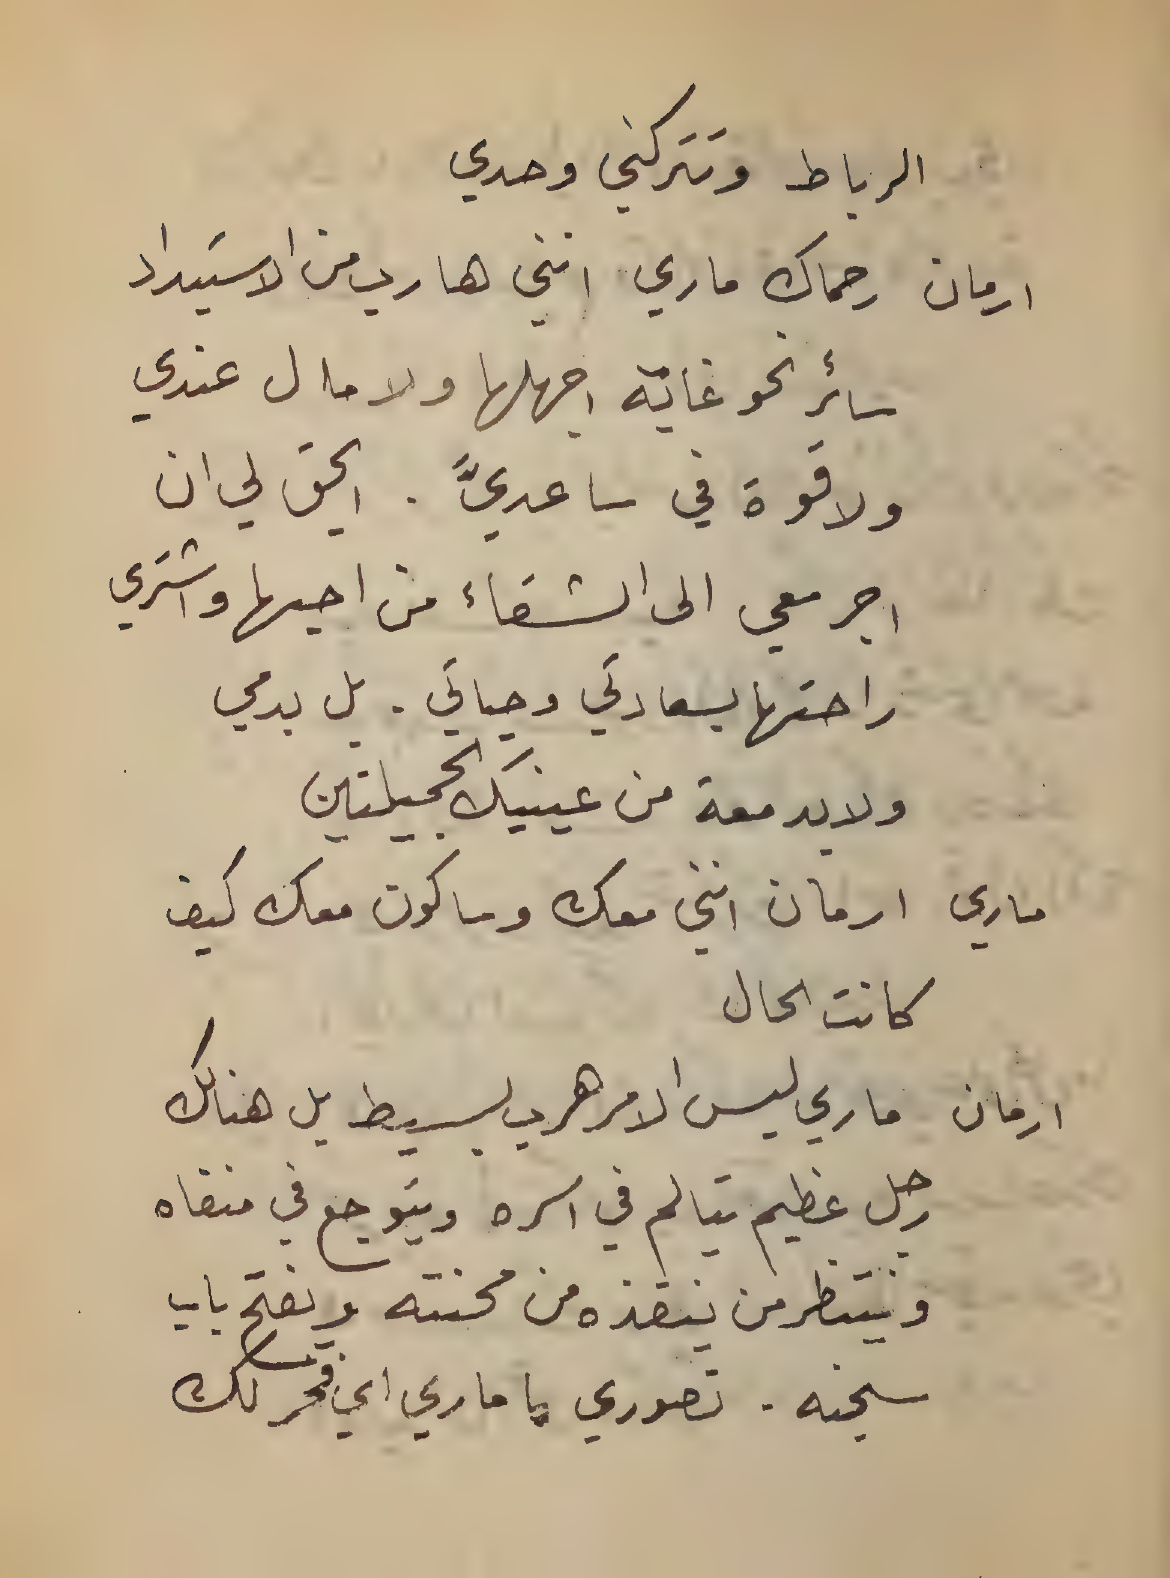 الرباط وتتركني وحدي
ارمان رحماك ماري انني هارب من الاستبداد
سائر نحو غاية اجهلها ولا مال عندي
ولا قوة في ساعديَّ . ايحق لي ان
اجر معي الى الشقاء من احبها واشتري
راحتها بسعادتي وحياتي . بل بدمي
ولا بدمعة من عينيك الجميلتين
ماري ارمان انني معك وساكون معك كيف
كانت الحال
ارمان ماري ليس الامر هرب بسيط بل هنالك
رجل عظيم يتالم في اسره ويتوجع في منفاه
وينتظر من ينقذه من محنته ويفتح باب
سجنه . تصوري يا ماري اي فخر لك